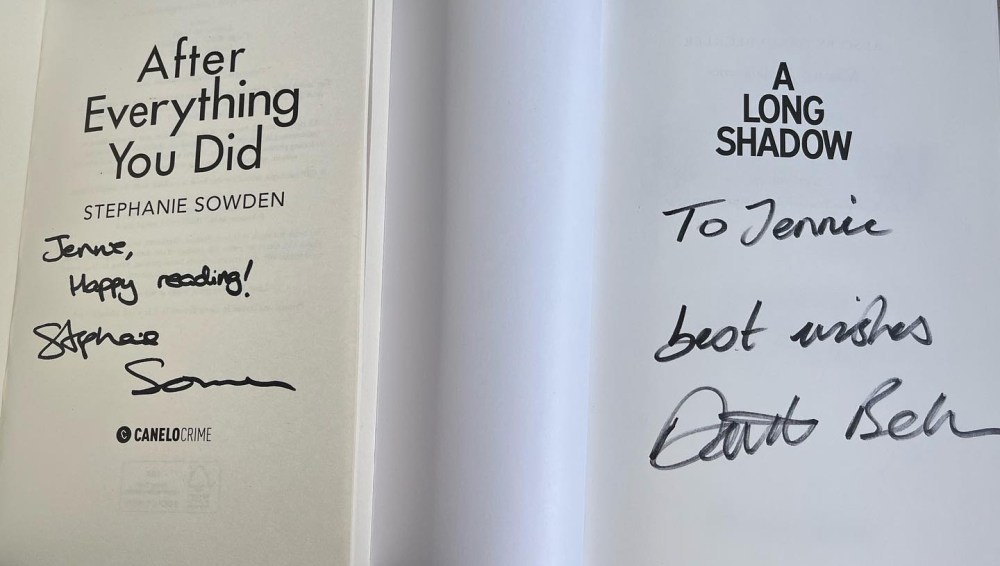 After
Everything
You Did
STEPHANIE SOWDEN
Jennie,
Happy reading!
Stephanie
CANELOCRIME
A
LONG
SHADOW
To Jennie
best wishes